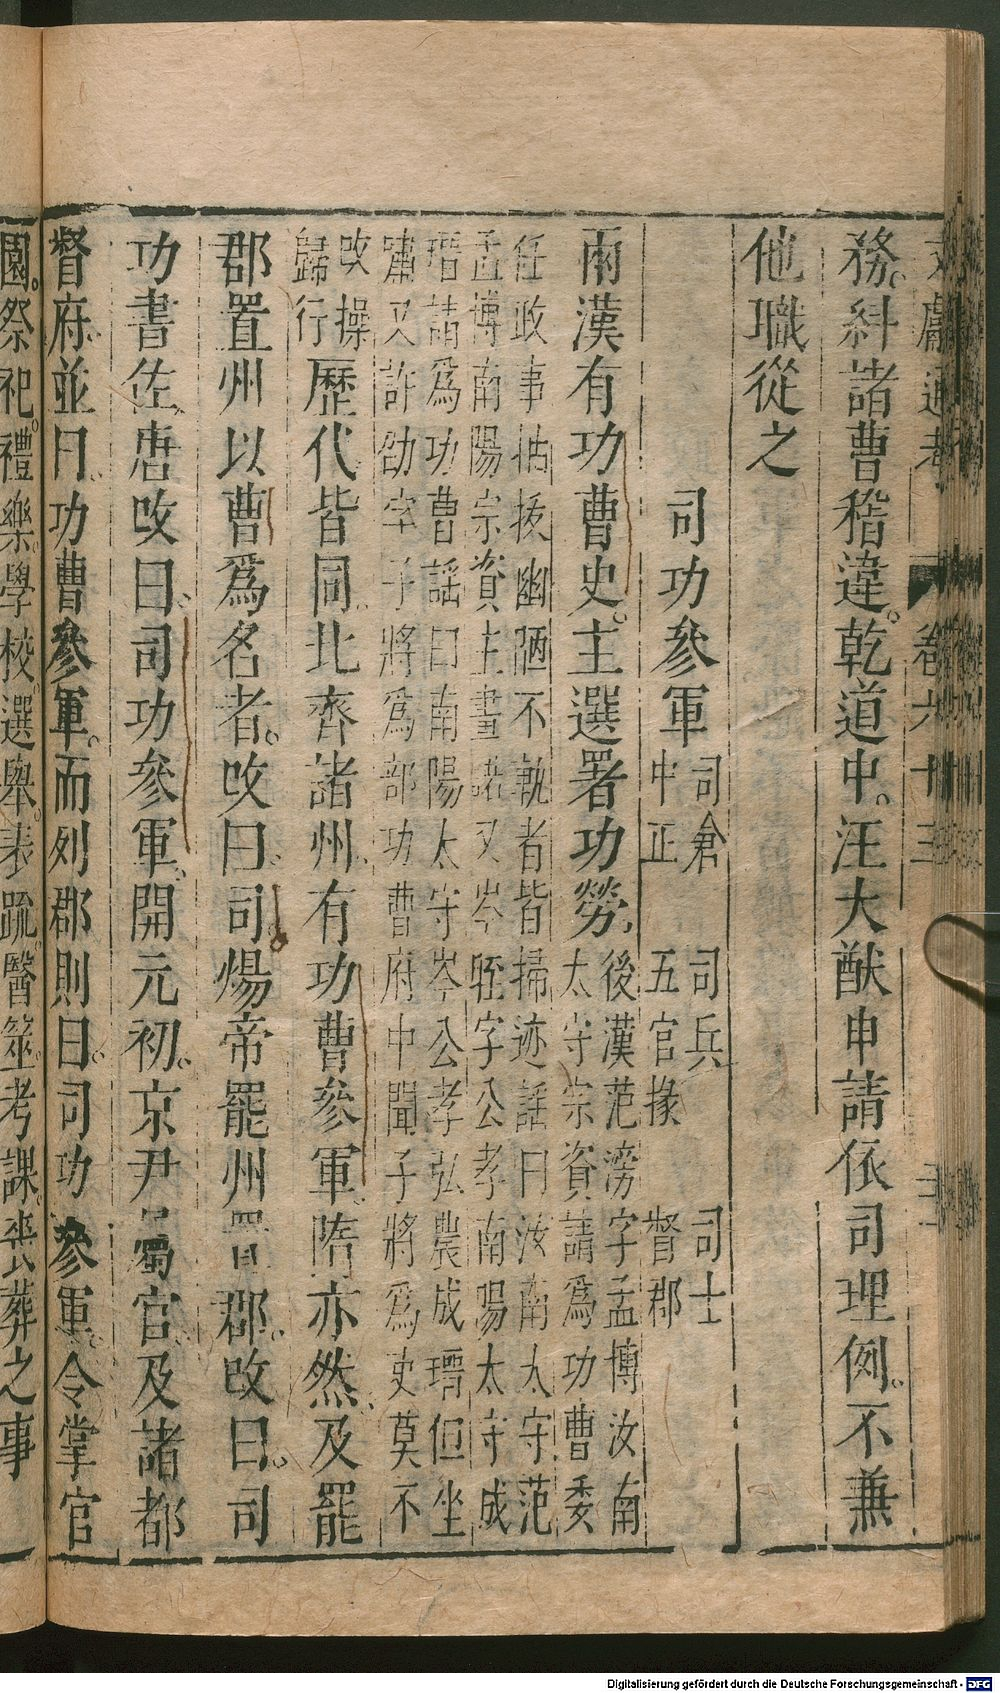 文獻通考 卷六十三
務。糾諸曹稽違。乾道中。汪大猷申請依司理例。不兼
他職從之
司功參軍 司倉 司兵 司士
中正 五官掾 督郡
兩漢有功曹史。主選署功勞。後漢范滂字孟博汝南
太守宗資請爲功曹委
任政事拈拔幽陋不軌者皆掃迹謡曰汝南太守范
孟博南陽宗資主畫諾又岑晊字公孝南陽太守成
瑨請爲功曹謡曰南陽太守岑公孝弘農成瑨但坐
嘯又許劭字子將爲部功曹府中聞子將爲吏莫不
改操
歸行
歷代皆同。北齊諸州有功曹參軍。隋亦然。及罷
郡置州以曹爲名者。改曰。司煬帝罷州置郡。改曰。司
功書佐。唐改曰。司功參軍。開元初。京尹屬官。及諸都
督府並曰。功曹參軍。而列郡則曰。司功參軍。令掌官
園。祭祀。禮樂。學校。選舉。表疏。醫筮。考課。喪葬之事
Digitalisierung gefördert durch die Deutsche Forschungsgemeinschaft - DFG